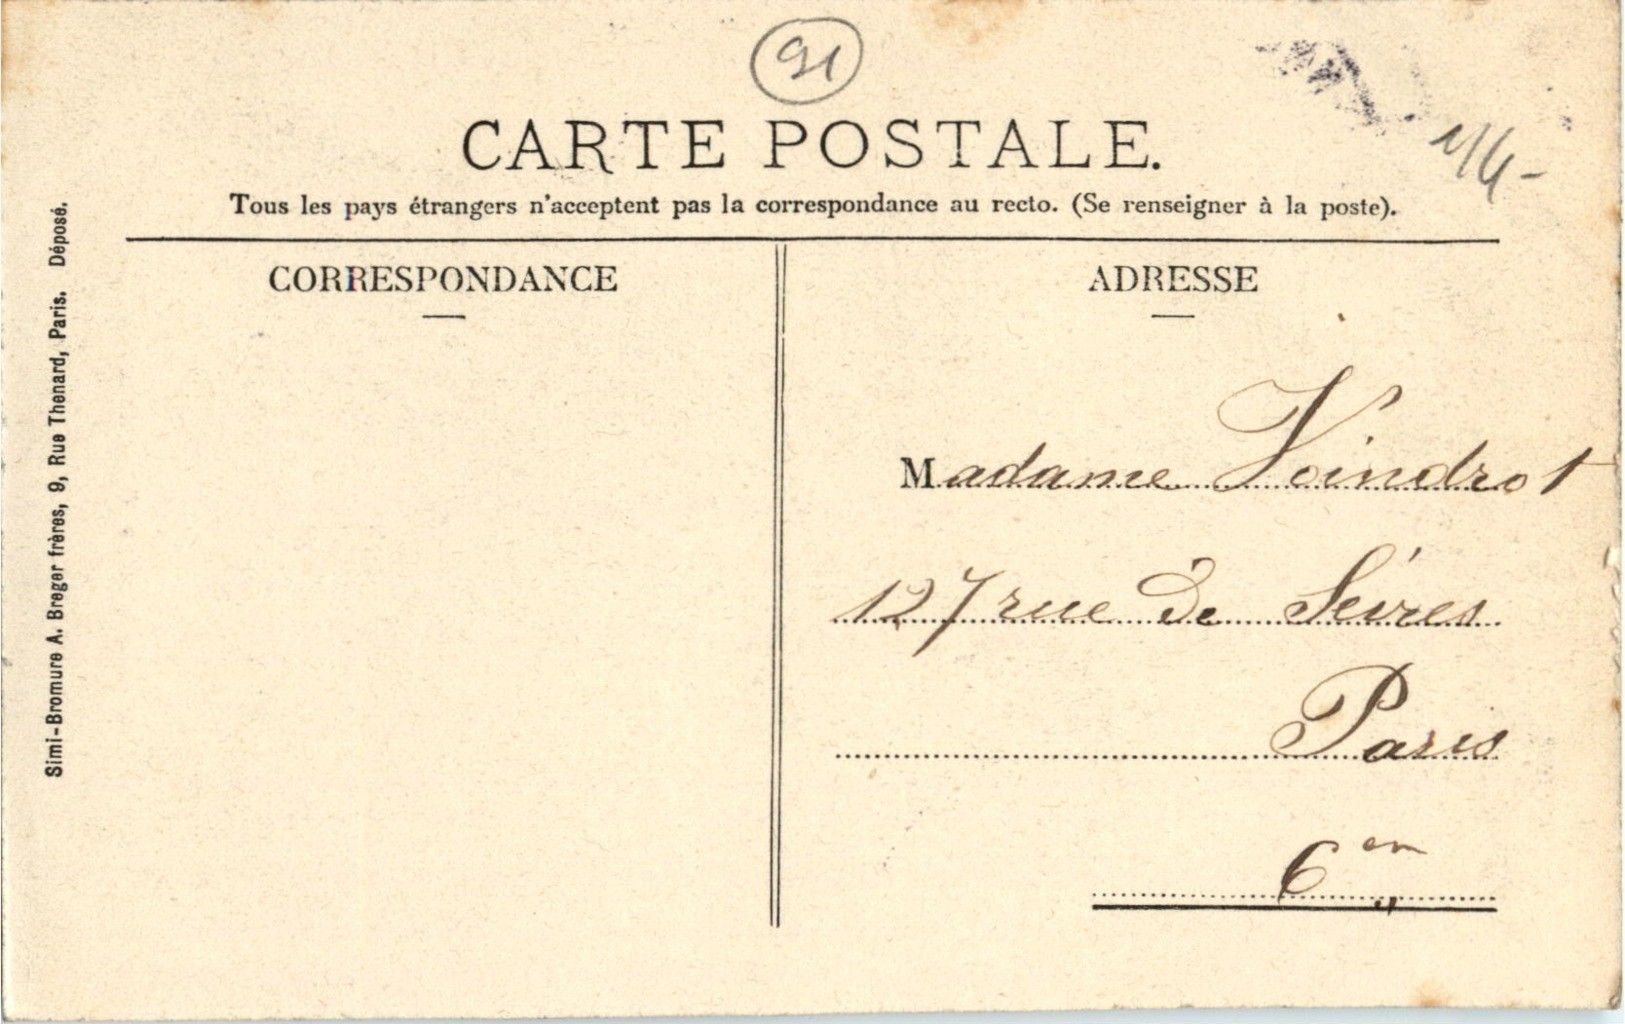 91
CARTE POSTALE.
Tous les pays étrangers n'acceptent pas la correspondance au recto. (Se renseigner à la poste).
CORRESPONDANCE
ADRESSE
Madame Voindrot
127 rue de Sèvres
Paris
6em
Simi-Bromure A. Breger frères, 9, Rue Thenard, Paris. Déposé.